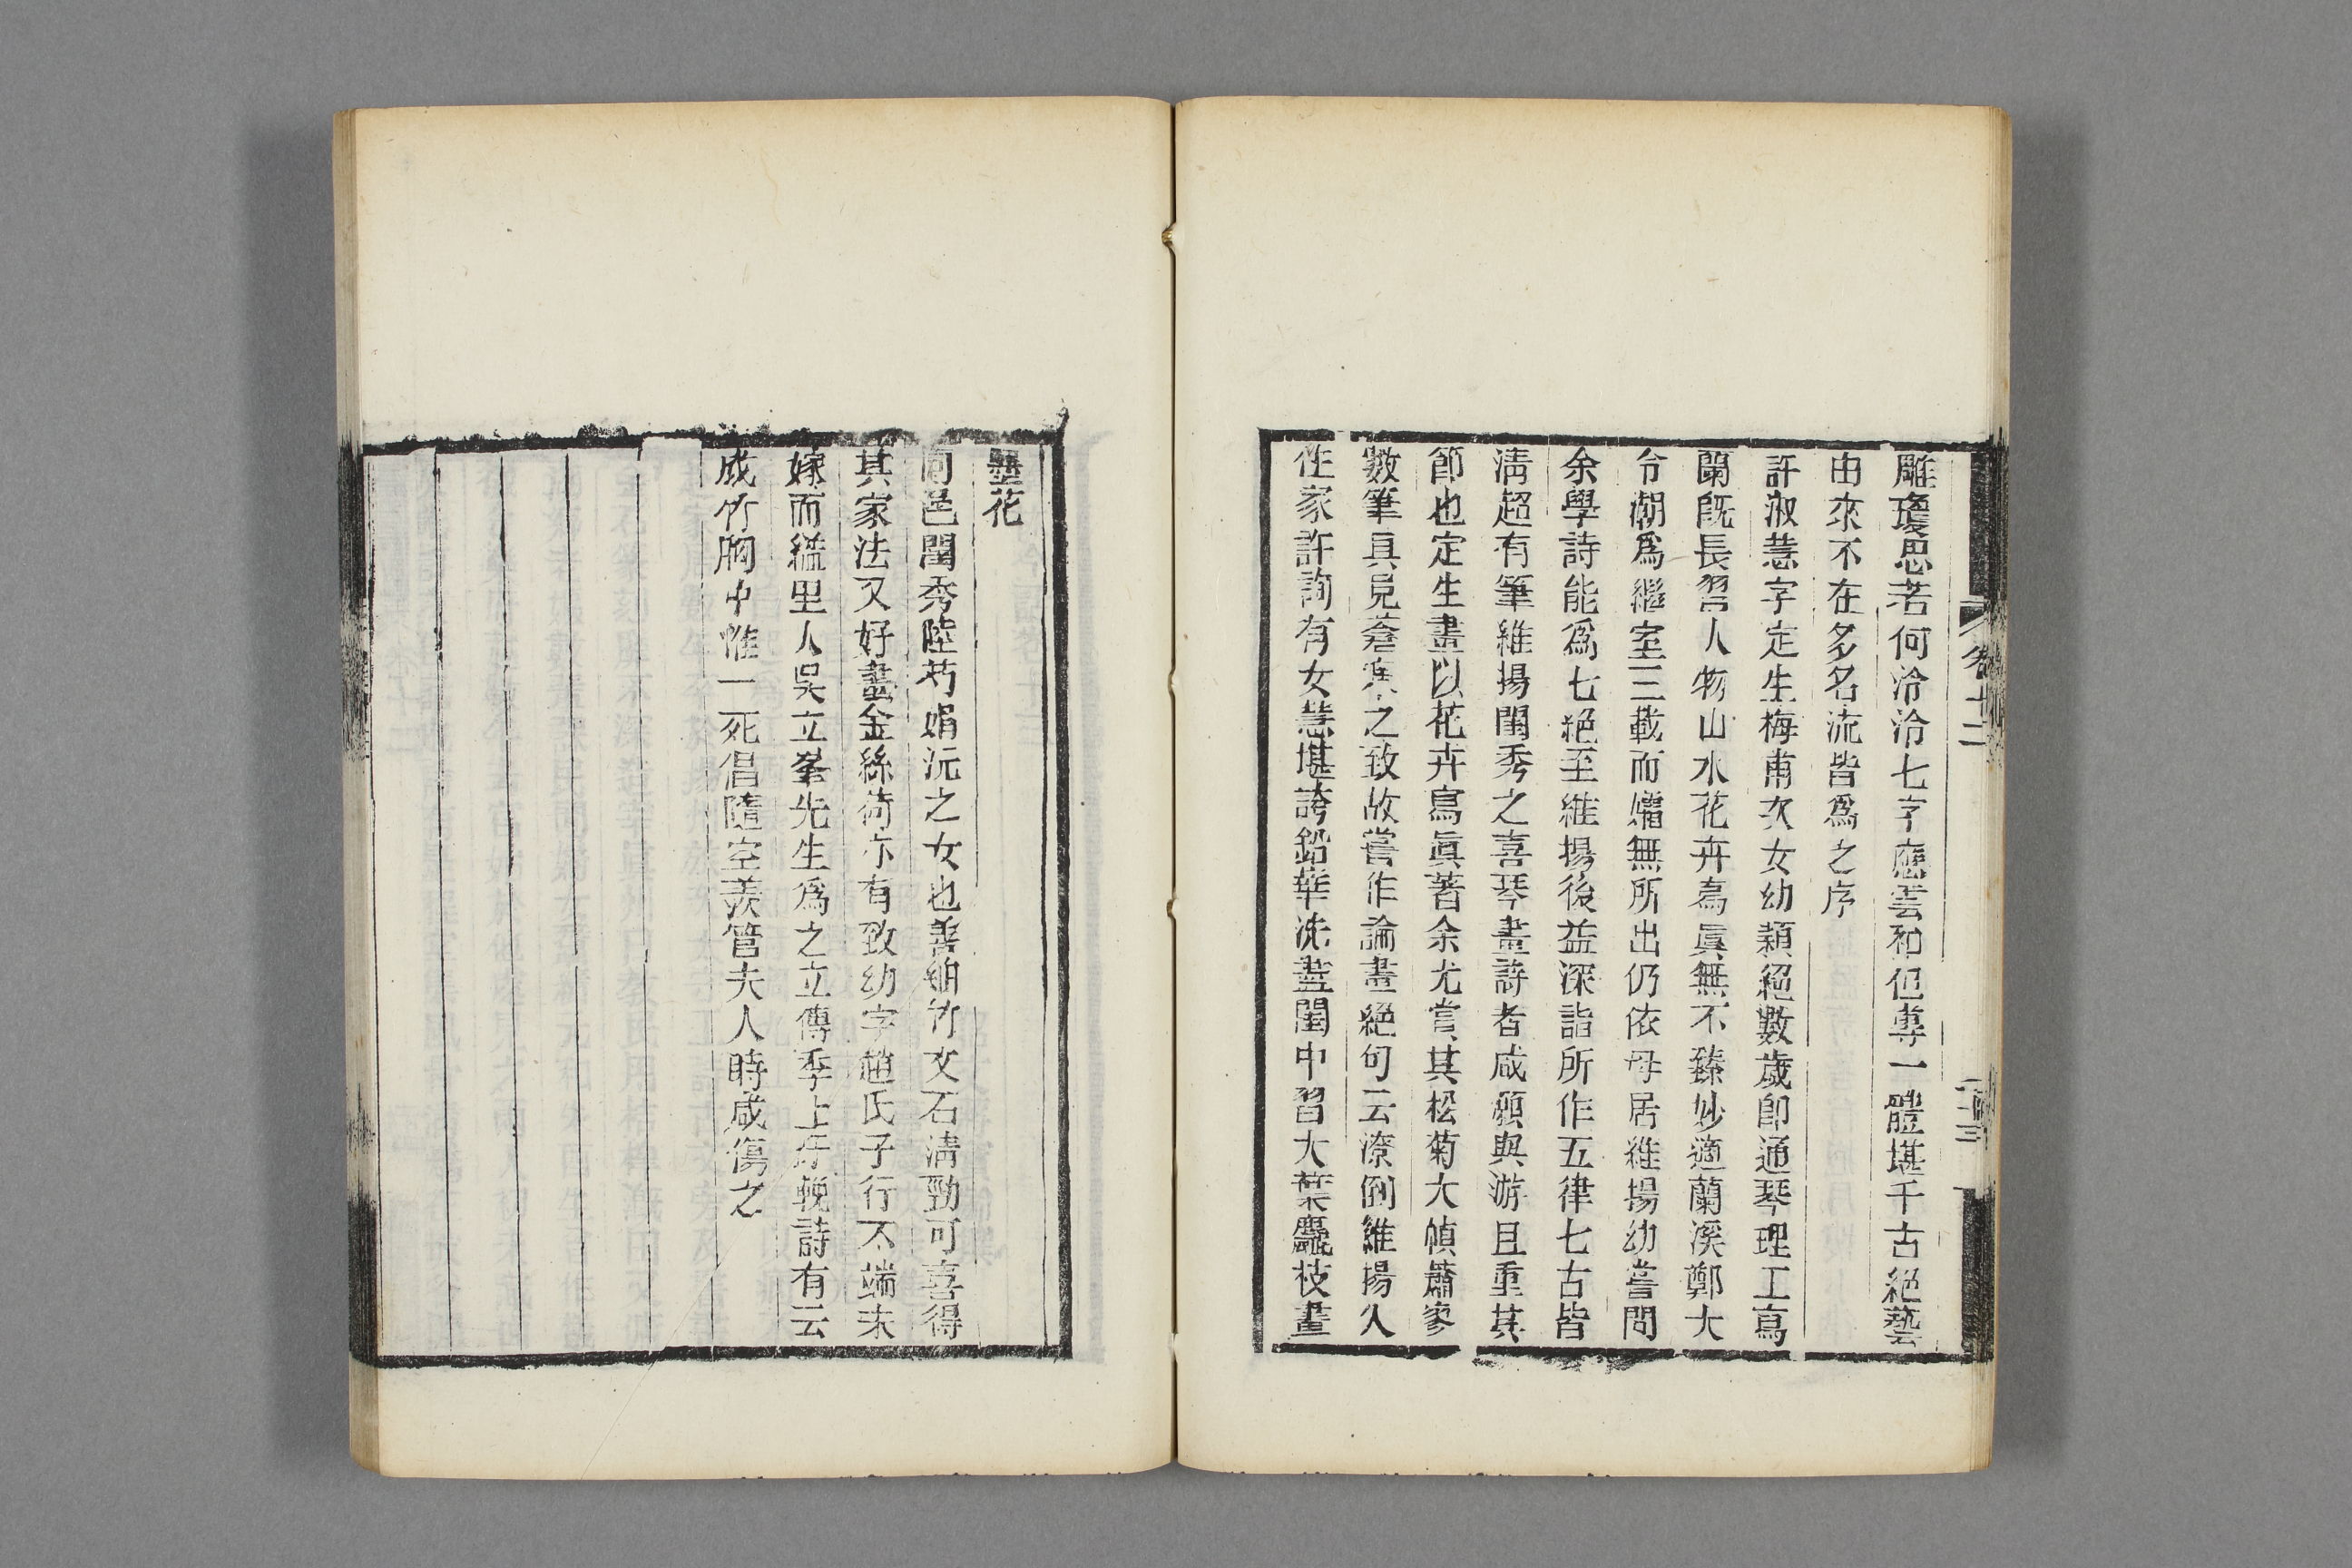 雕瓊思若何泠泠七字應雲和但專一體堪千古絕藝
由來不在多名流皆爲之序
許淑慧字定生梅甫次女幼穎絕數歲卽通琴理工寫
蘭旣長習人物山水花卉寫眞無不臻妙適蘭溪鄭大
令湖爲繼室三載而孀無所出仍依母居維揚幼嘗問
余學詩能爲七絕至維揚後益深詣所作五律七古皆
淸超有筆維揚閨秀之喜琴畫詩者咸願與游且重其
節也定生畫以花卉寫眞著余尤賞其松菊大幀蕭寥
數筆具見蒼寒之致故嘗作論畫絕句云潦倒維揚久
住家許詢有女慧堪誇鉛華洗盡閨中習大葉麤枝畫
卷十二
二三
墨花
同邑閨秀陸芍娟沅之女也善細竹文石淸勁可喜得
其家法又好畫金絲荷亦有致幼字趙氏子行不端未
嫁而縊里人吳立峯先生爲之立傳季上舍輓詩有云
成竹胸中惟一死倡隨空羨管夫人時咸傷之